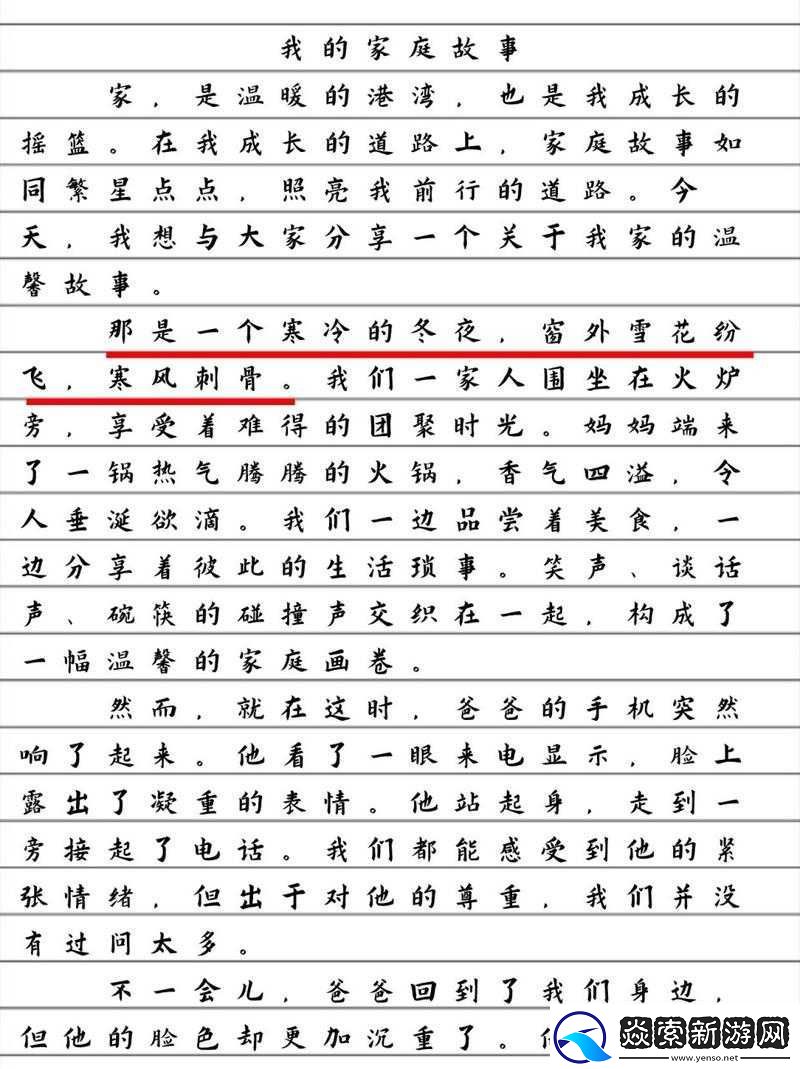 我的家庭故事
家，是温暖的港湾，也是我成长的
摇篮。在我成长的道路上，家庭故事如
同繁星点点，照亮我前行的道路。今
天，我想与大家分享一个关于我家的温
馨故事。
那是一个寒冷的冬夜，窗外雪花纷
飞，寒风刺骨。我们一家人围坐在火炉
旁，享受着难得的团聚时光。妈妈端来
了一锅热气腾腾的火锅，香气四溢，令
人垂涎欲滴。我们一边品尝着美食，一
边分享着彼此的生活琐事。笑声、谈话
声、碗筷的碰撞声交织在一起，构成了
一幅温馨的家庭画卷。
然而，就在这时，爸爸的手机突然
响了起来。他看了一眼来电显示，脸上
露出了凝重的表情。他站起身，走到一
旁接起了电话。我们都能感受到他的紧
张情绪，但出于对他的尊重，我们并没
有过问太多。
不一会儿，爸爸回到了我们身边，
但他的脸色却更加沉重了。
焱索新游网
www.yenso.net